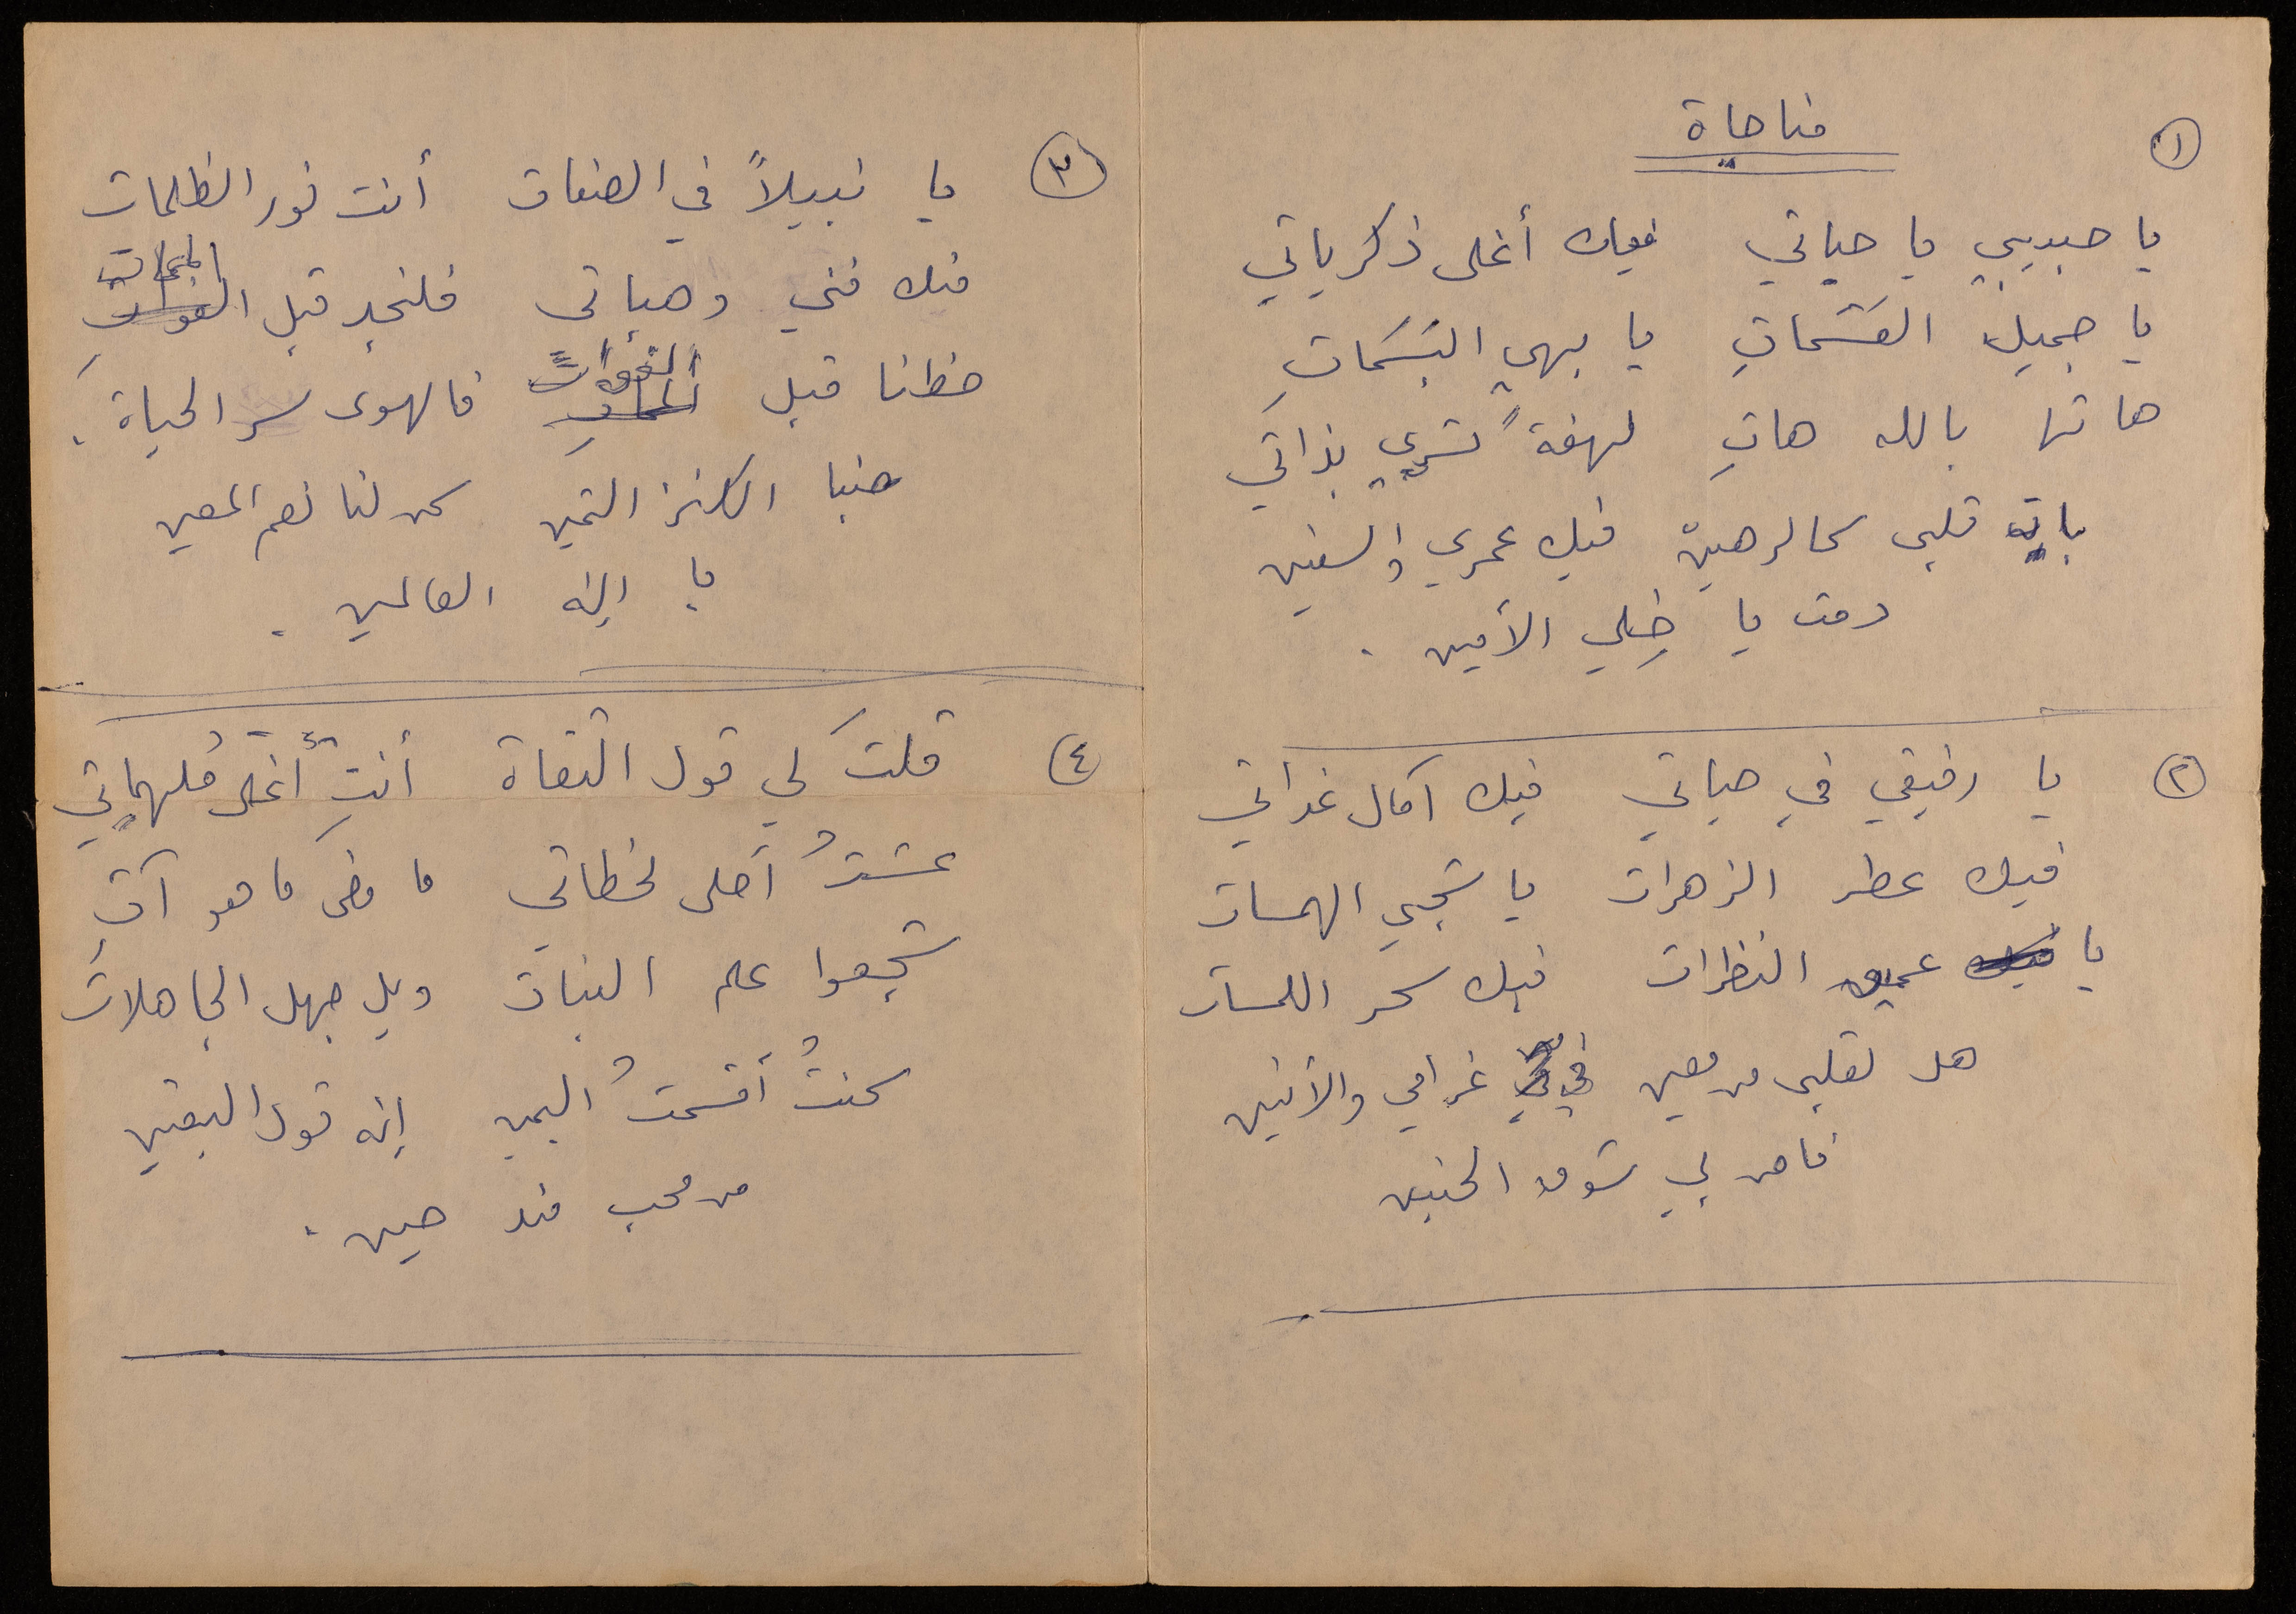 ١
مناجاة
يا حبيبي يا حياتي فيك أغلى ذكرياتي
يا جميل القسَماتِ يا بهي البسَماتِ
هاتها بالله هاتِ لهفةً تسري بذاتي
بات قلبي كالرهين فيك عمري والسنين
دمت يا خِلي الأمين .
٢
يا رفيقي في حياتي فيك آمال غداتي
فيك عطر الزهرات يا شجي الهمسات
يا عميق النظرات فيك سحر اللمسات
هل لقلبي من معين في غرامي والأنين
فاض بي شوق الحنين
٣
يا نبيلاً في الصفات أنت نور الظلمات
منك فني وهباتي فلنجد قبل الممات
حظنا قبل الفوات فالهوى سر الحياة .
حبنا الكنز الثمين كن لنا نعم المعين
يا إله العالمين .
٤
قلتَ لي قول الثقاة أنتِ أغلى مُلهماتي
عشتُ أحلى لحظاتي ما مضى ما هو آتِ
شجعوا علم البنات ويل جهل الجاهلات
كنتُ أقسمتُ اليمين إنه قول اليقين
من محب منذ حين .